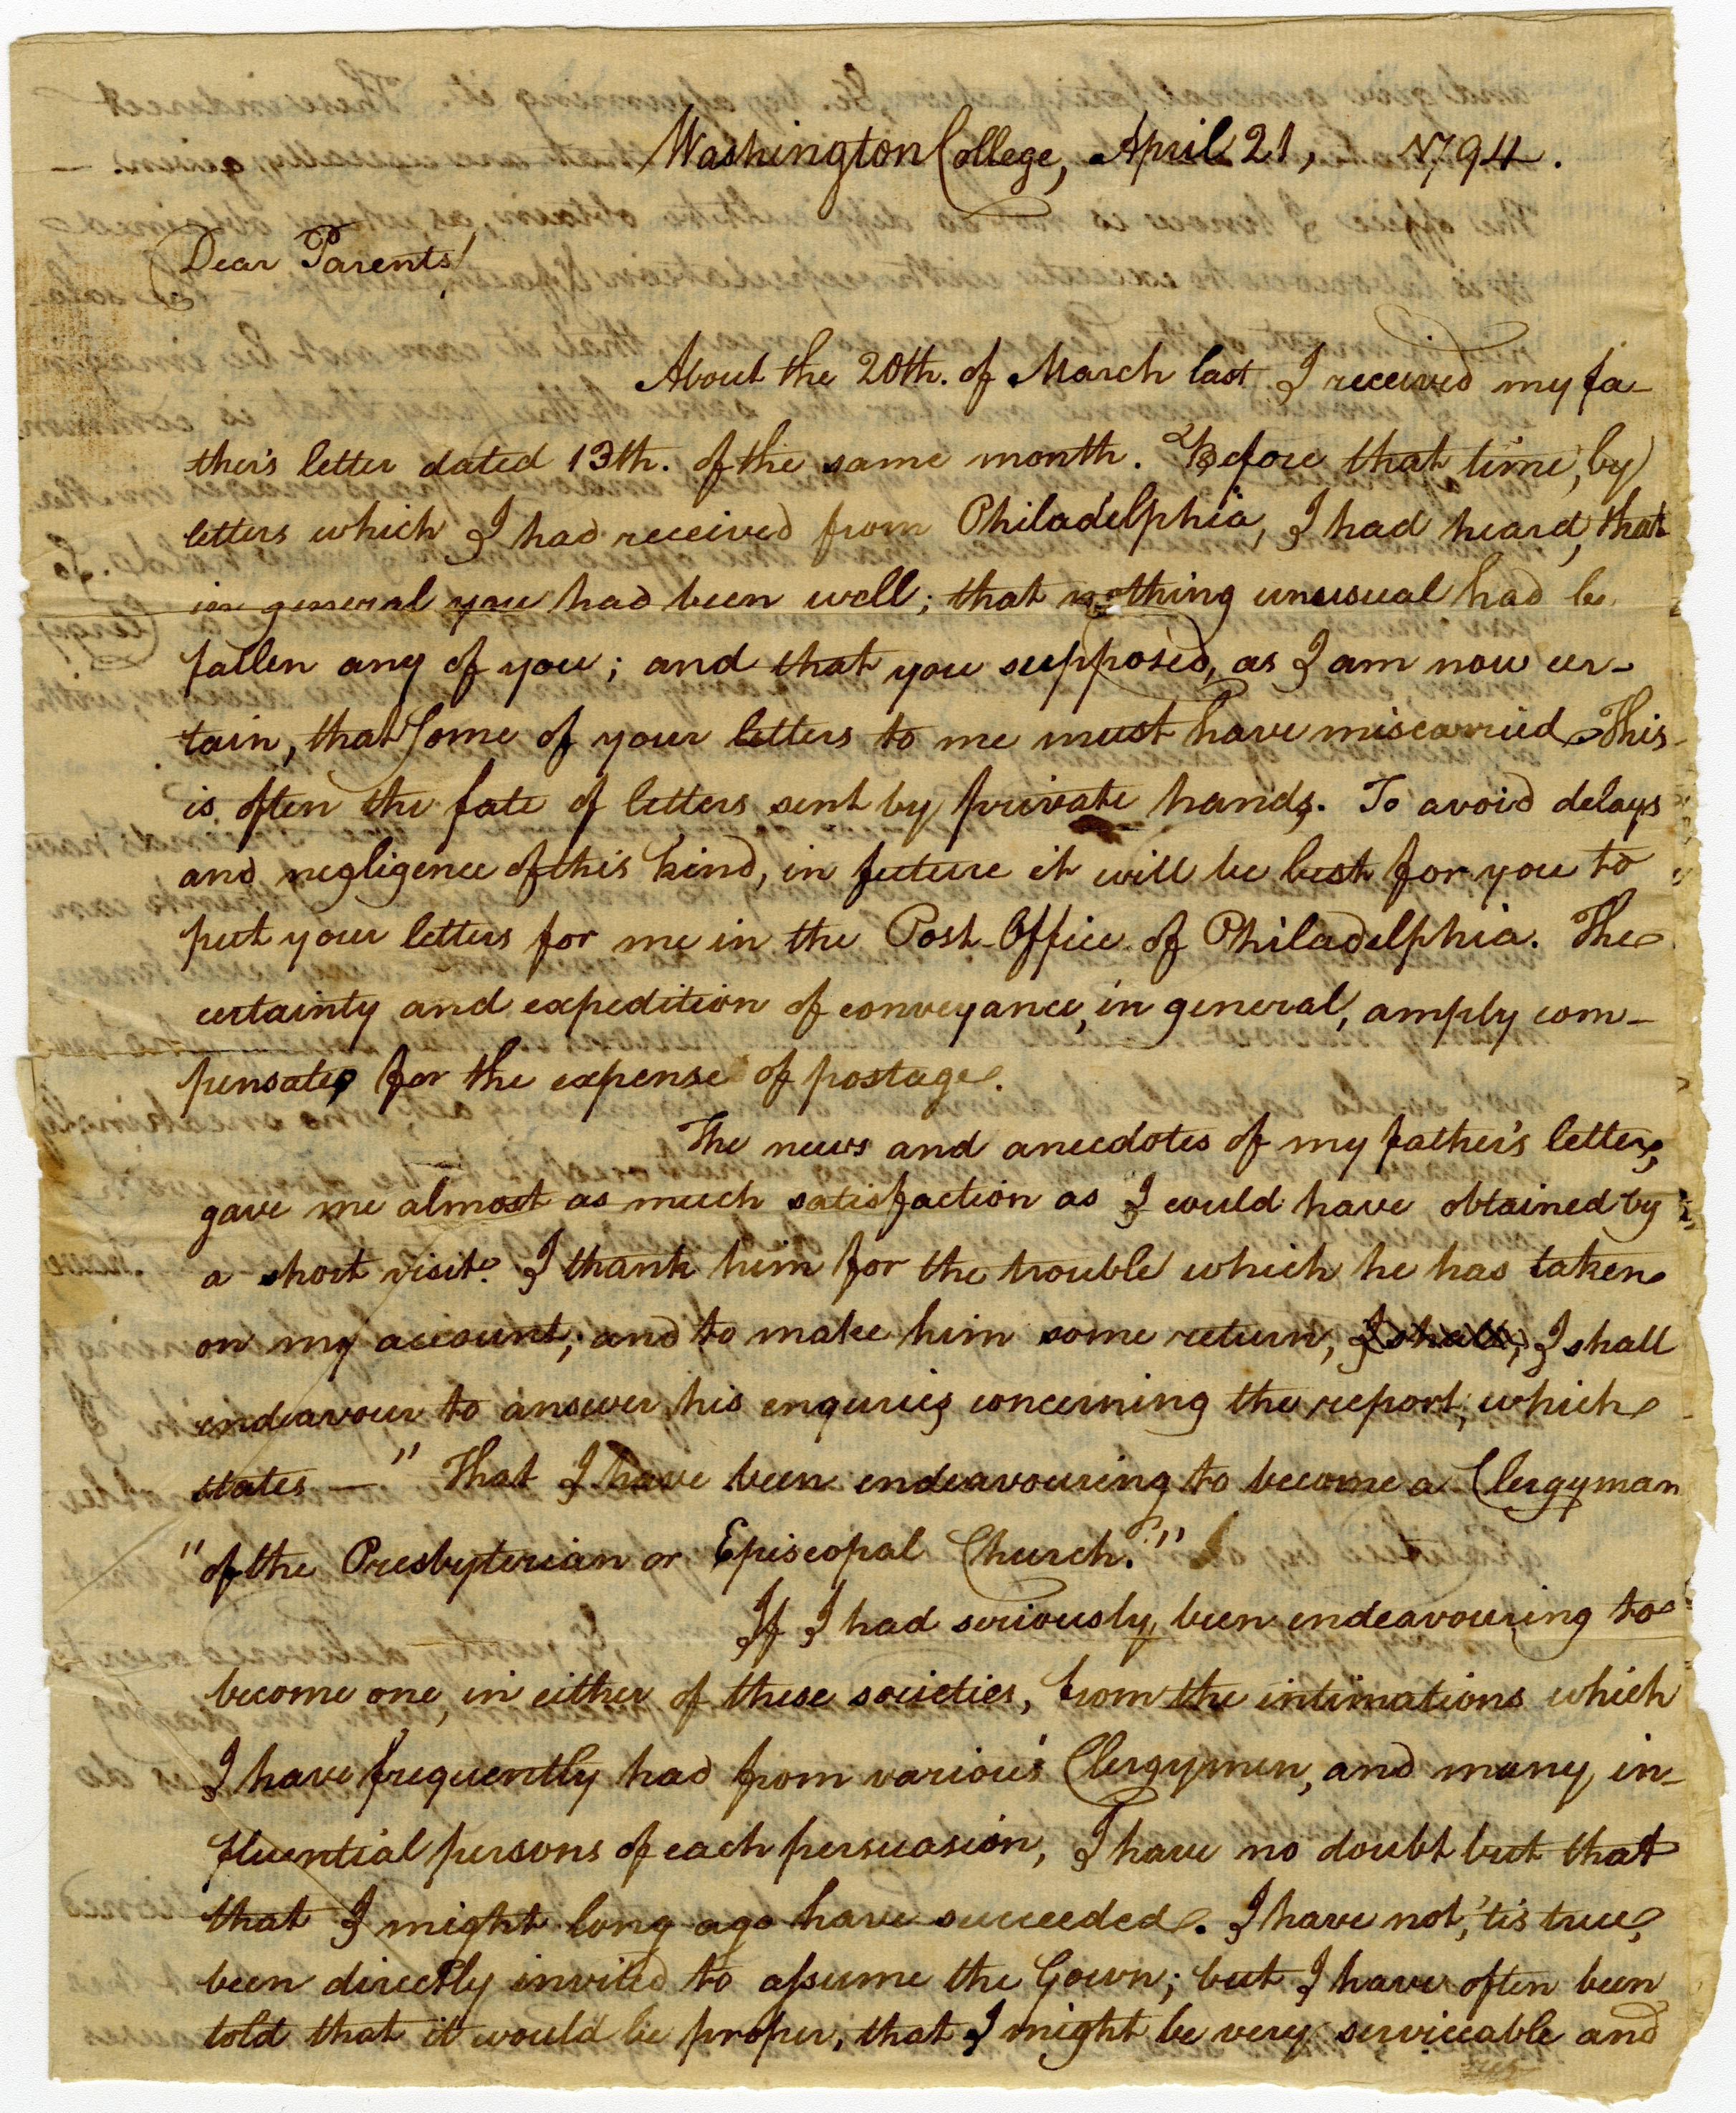 Washington College, April 21, 1794.
Dear Parents!
About the 20th. of March last I received my fa-
ther's letter dated 13th. of the same month. Before that time, by
letters which I had received from Philadelphia, I had heard, that
in general you had been well; that nothing unusual had be
fallen any of you; and that you supposed, as I am now cer-
tain, that some of your letters to me must have miscarried. This
is often the fate of letters sent by private hands. To avoid delays
and negligence of this kind, in future it will be best for you to
put your letters for me in the Post-Office of Philadelphia. The
certainty and expedition of conveyance, in general, amply com-
pensates for the expense of postage.
The news and anecdotes of my father's letter,
gave me almost as much satisfaction as I could have obtained by
a short visit. I thank him for the trouble which he has taken
on my account; and to make him some return, I shall, I shall
endeavour to answer his enquries concerning the report, which
states — " That I have been endeavouring to become a Clergyman
" of the Presbyterian or Episcopal Church."
If I had seriously been endeavouring to
become one, in either of these societies, from the intimations which
I have frequently had from various Clergymen, and many in-
fluential persons of each persuasion, I have no doubt but that
that I might long ago have succeeded. I have not, 'tis true,
been directly invited to assume the Gown; but I have often been
told that it would be proper, that I might be very serviceable and